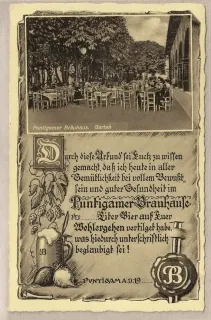 Puntigamer Bräuhaus. Garten
Durch diese Urkund sei Euch zu wissen
gemacht, daß ich heute in aller
Gemütlichkeit bei vollem Bewußt-
sein und guter Gesundheit im
Puntigamer-Brauhause
Liter Bier auf Euer
Wohlergehen vertilget habe,
was hiedurch unterschriftlich
beglaubigt sei!
PUNTIGAM a. 19
B